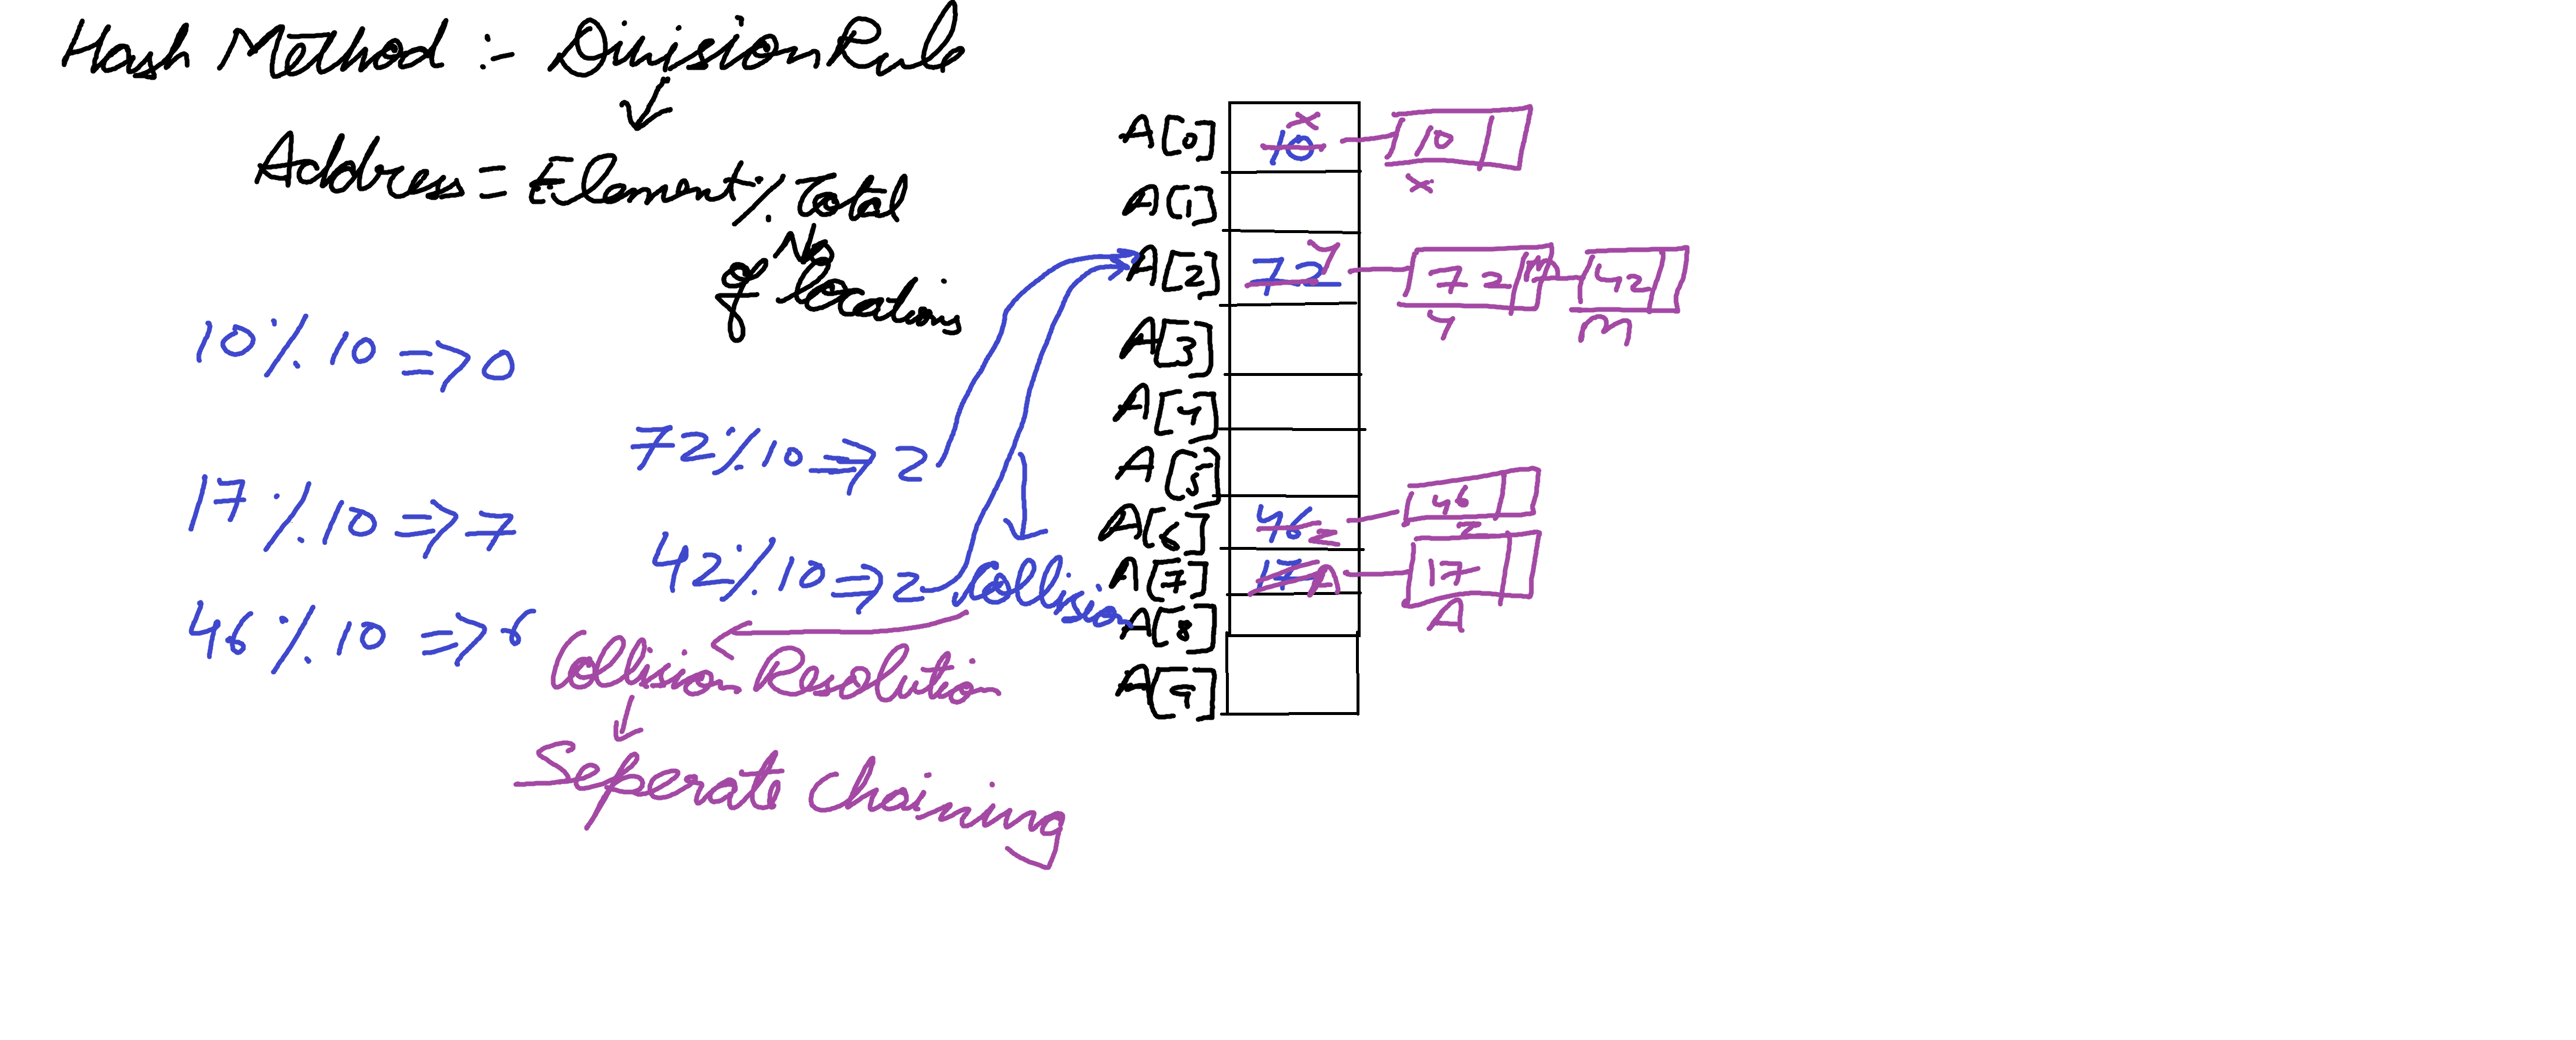 Hash Method :- Division Rule
Address = Element % Total
No
of locations
10 % 10 => 0
17 % 10 => 7
46 % 10 => 6
72 % 10 => 2
42 % 10 => 2
Collision
Collision Resolution
Seperate Chaining
A[0] 10 x 10
x
A[1]
A[2] 72 y 72 m 42
y m
A[3]
A[4]
A[5]
A[6] 46 z 46
z
A[7] 17 A 17
A
A[8]
A[9]